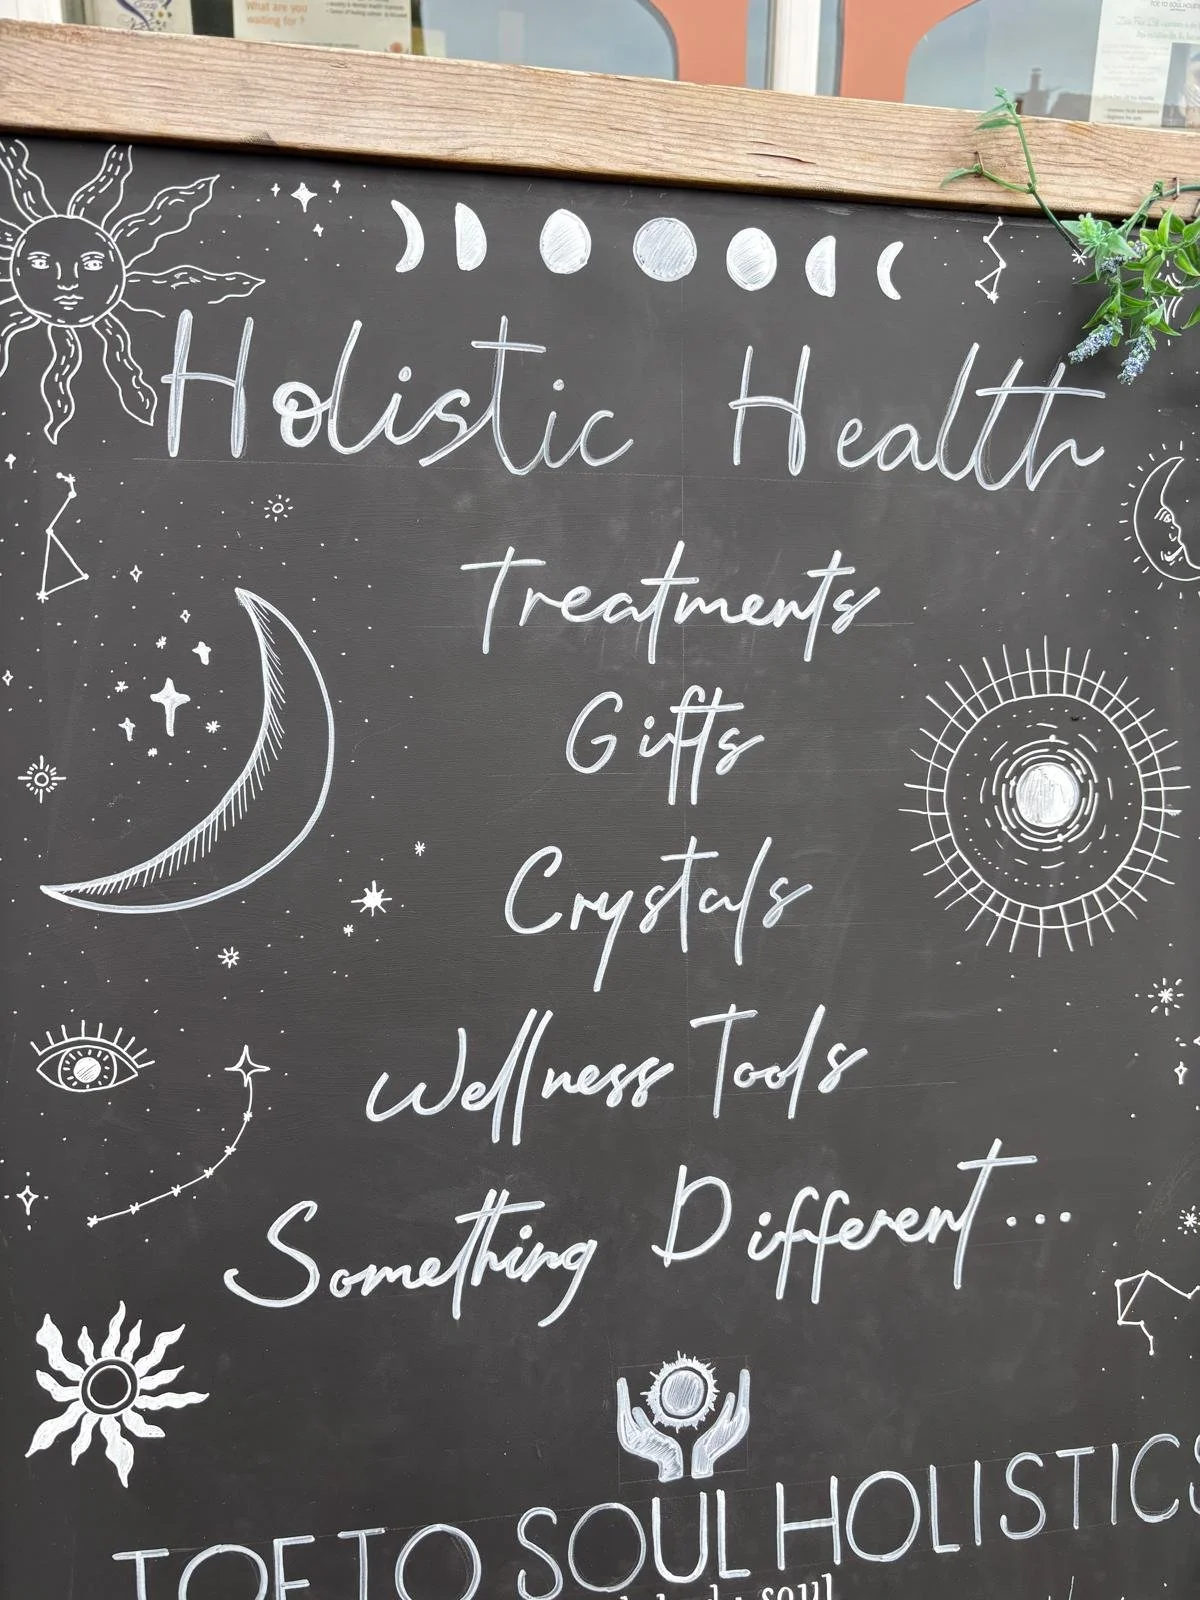 What are you
waiting for?
TOE TO SOUL HOLISTICS
Holistic Health
Treatments
Gifts
Crystals
Wellness Tools
Something Different...
TOE TO SOUL HOLISTICS
soul